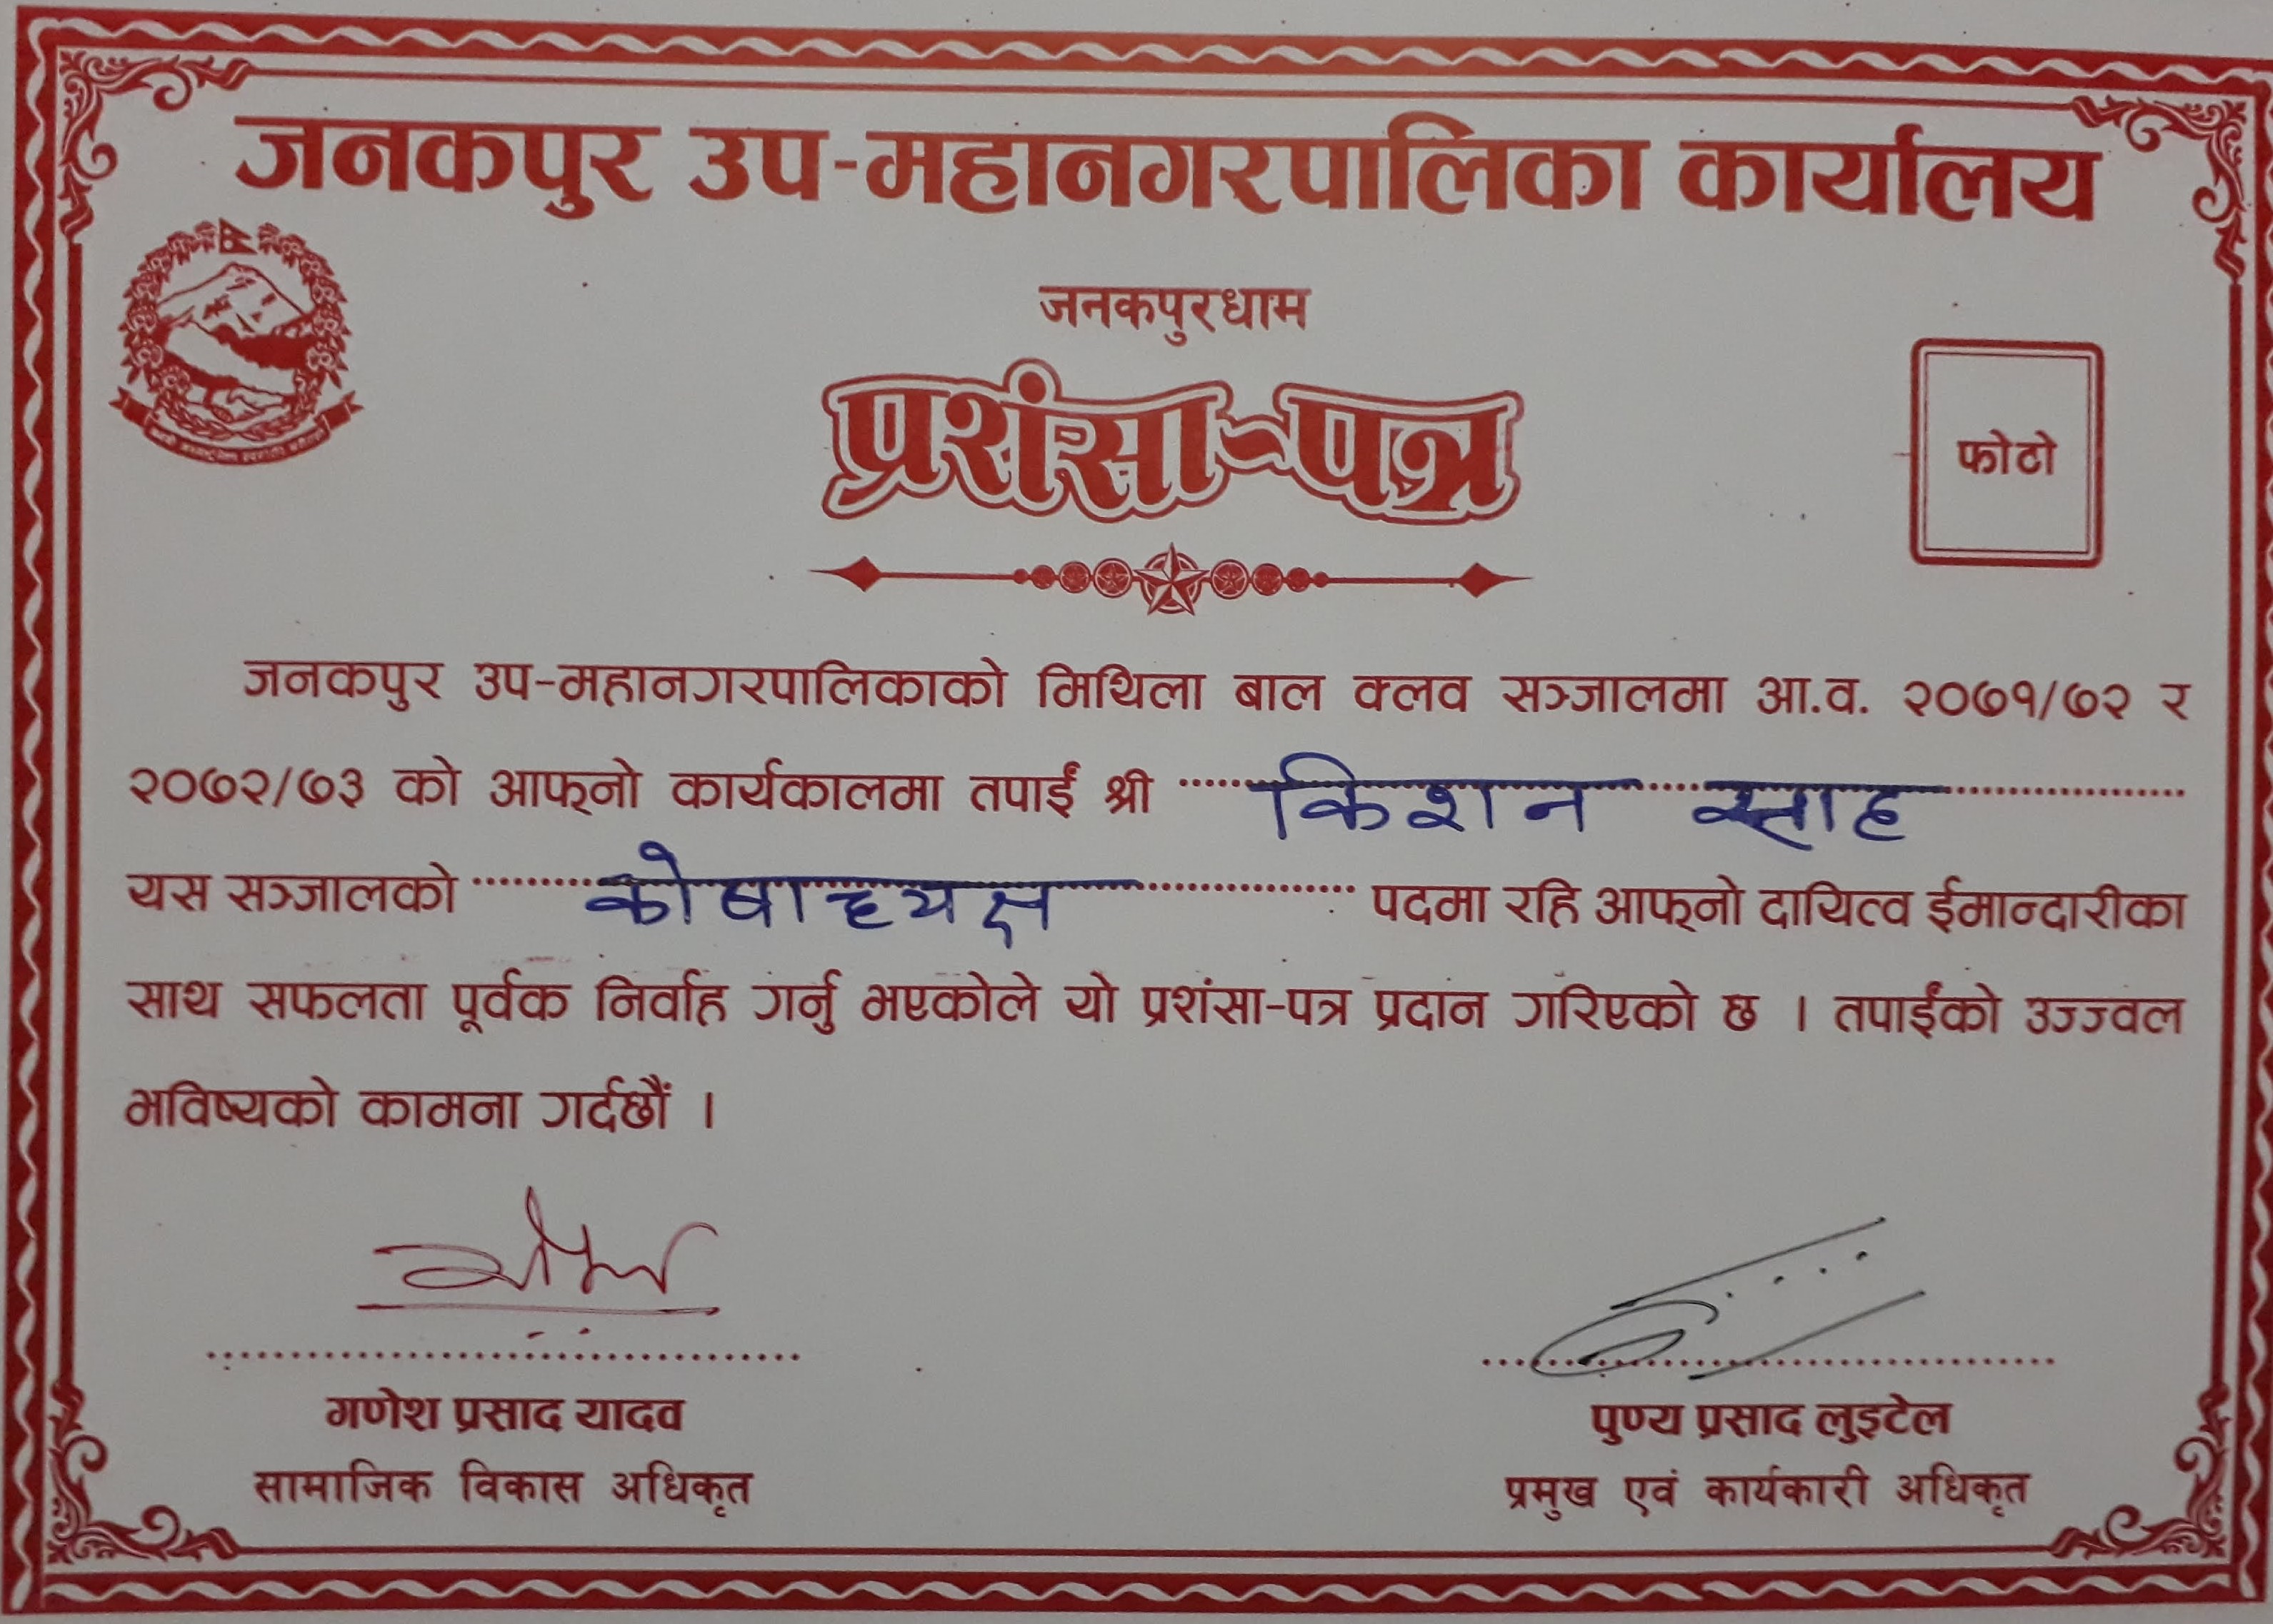 जनकपुर उप-महानगरपालिका कार्यालय
जनकपुरधाम
प्रशंसा-पत्र
फोटो
जनकपुर उप-महानगरपालिकाको मिथिला बाल क्लव सञ्जालमा आ.व. २०७१/७२ र
२०७२/७३ को आफ्नो कार्यकालमा तपाईं श्री किशन साह
यस सञ्जालको कोषाध्यक्ष पदमा रहि आफ्नो दायित्व ईमान्दारीका
साथ सफलता पूर्वक निर्वाह गर्नु भएकोले यो प्रशंसा-पत्र प्रदान गरिएको छ । तपाईंको उज्ज्वल
भविष्यको कामना गर्दछौं ।
गणेश प्रसाद यादव
सामाजिक विकास अधिकृत
पुण्य प्रसाद लुइटेल
प्रमुख एवं कार्यकारी अधिकृत